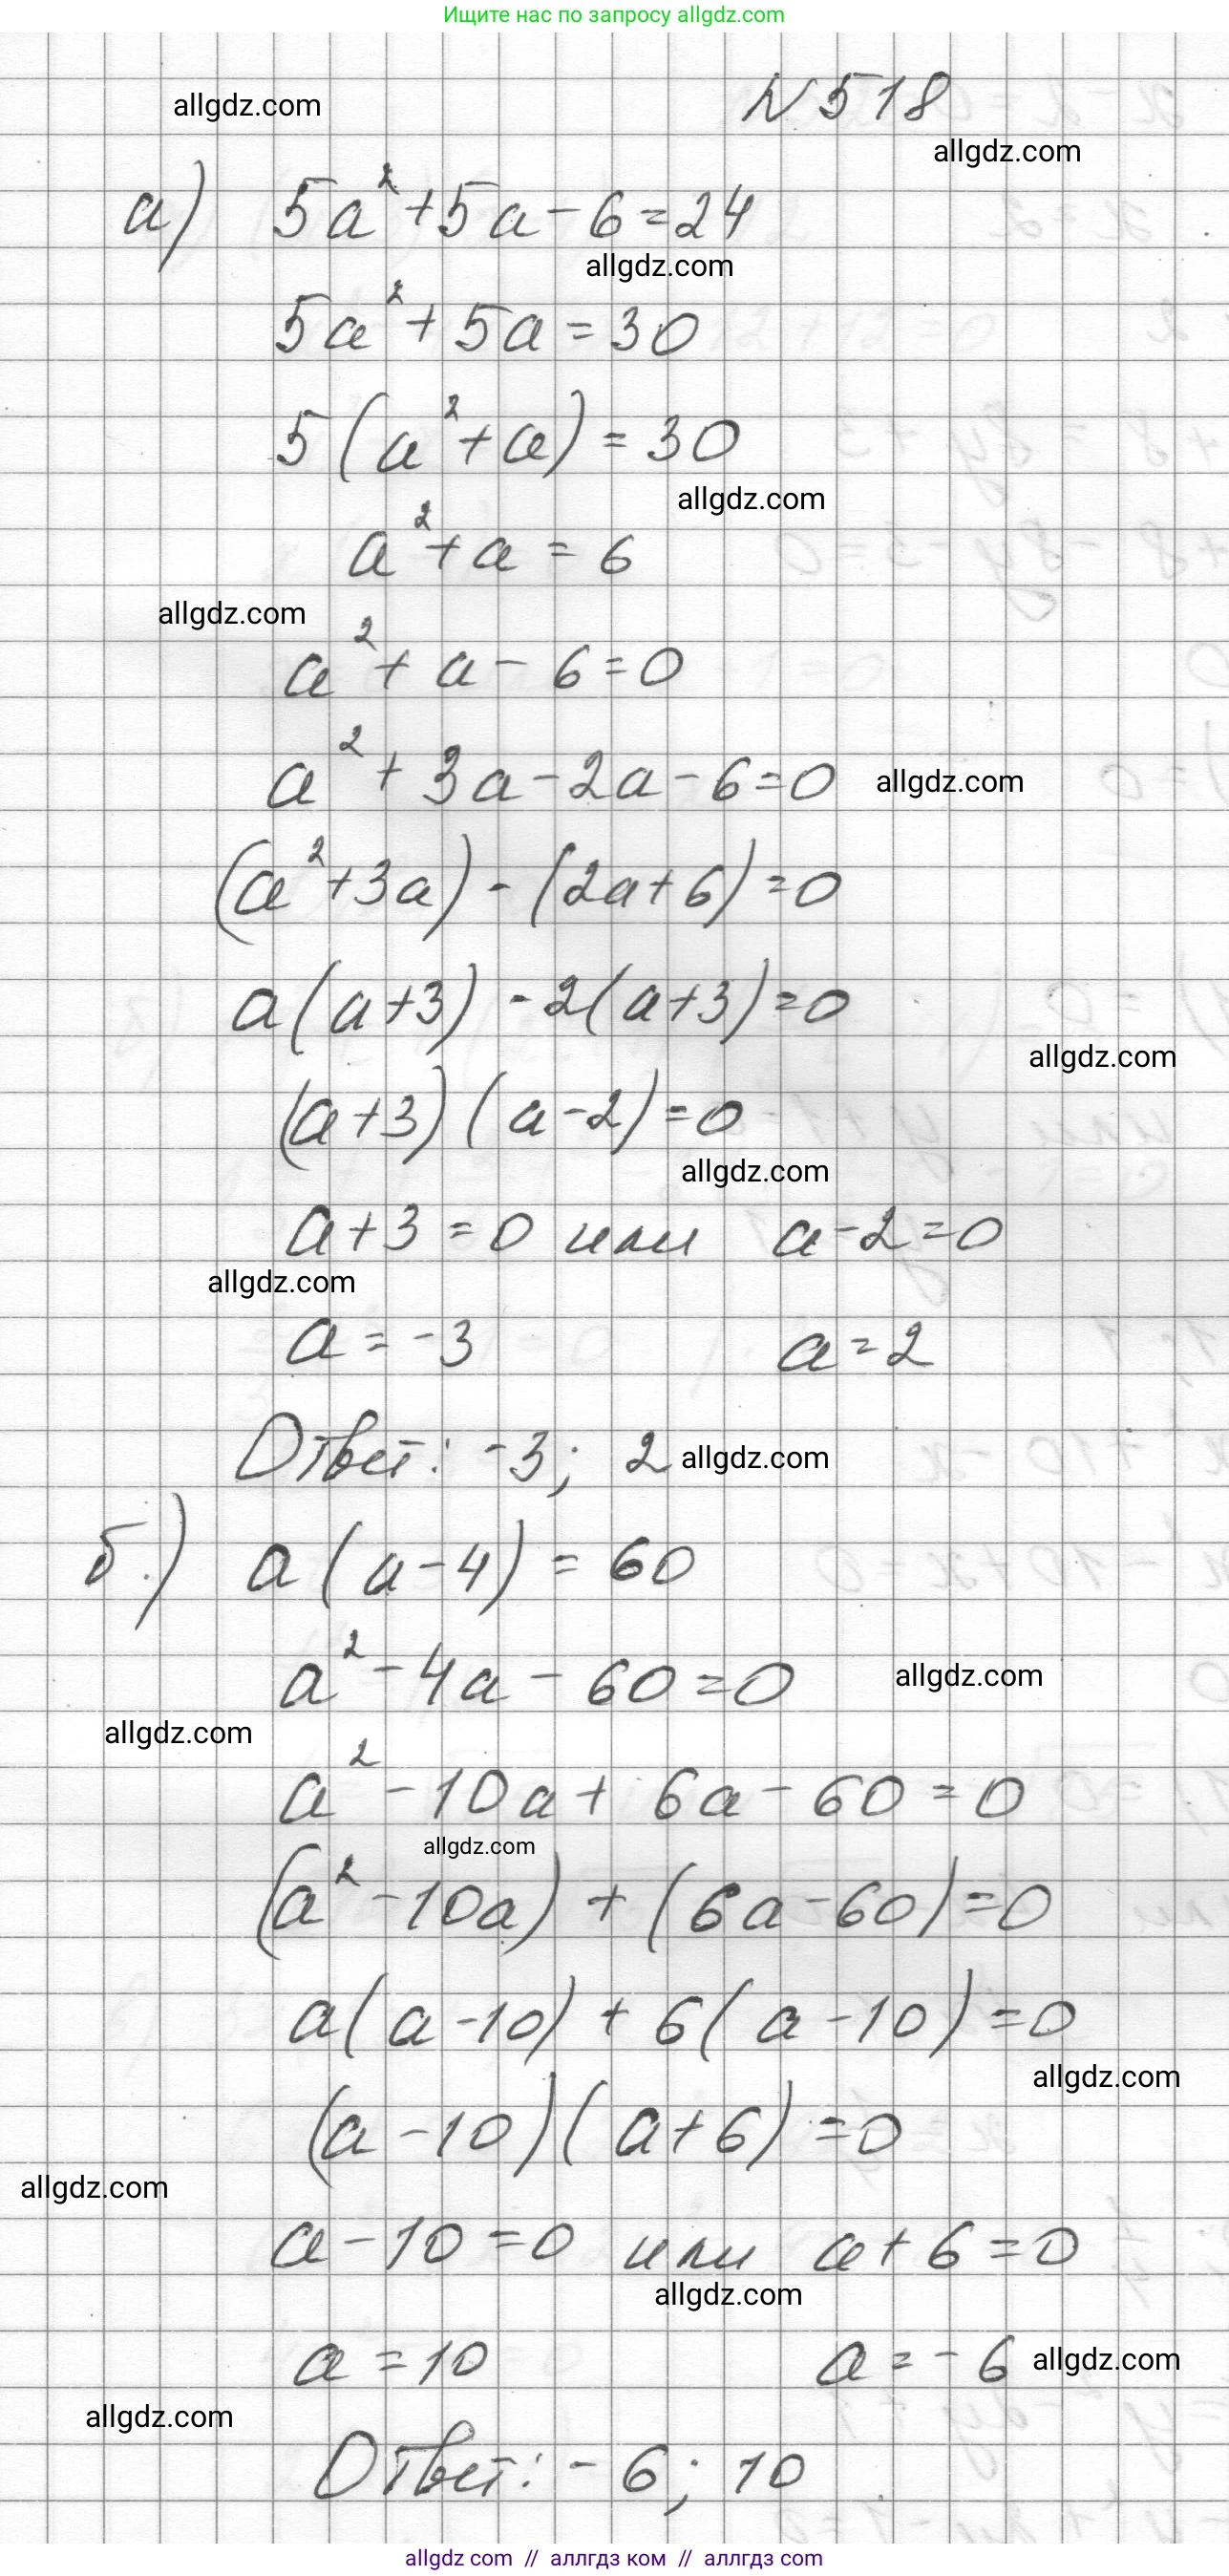 Ищите нас по запросу allgdz.com
allgdz.com
N 518
allgdz.com
а) 5a² + 5a - 6 = 24
allgdz.com
5a² + 5a = 30
5(a² + a) = 30
allgdz.com
a² + a = 6
allgdz.com
a² + a - 6 = 0
a² + 3a - 2a - 6 = 0 allgdz.com
(a² + 3a) - (2a + 6) = 0
a(a + 3) - 2(a + 3) = 0
allgdz.com
(a + 3)(a - 2) = 0
allgdz.com
a + 3 = 0 или a - 2 = 0
allgdz.com
a = -3 a = 2
Ответ: -3; 2 allgdz.com
б.) a(a - 4) = 60
a² - 4a - 60 = 0 allgdz.com
allgdz.com
a² - 10a + 6a - 60 = 0
allgdz.com
(a² - 10a) + (6a - 60) = 0
a(a - 10) + 6(a - 10) = 0
allgdz.com
(a - 10)(a + 6) = 0
allgdz.com
a - 10 = 0 или a + 6 = 0
allgdz.com
a = 10 a = -6 allgdz.com
allgdz.com
Ответ: -6; 10
allgdz com // аллгдз ком // аллгдз com